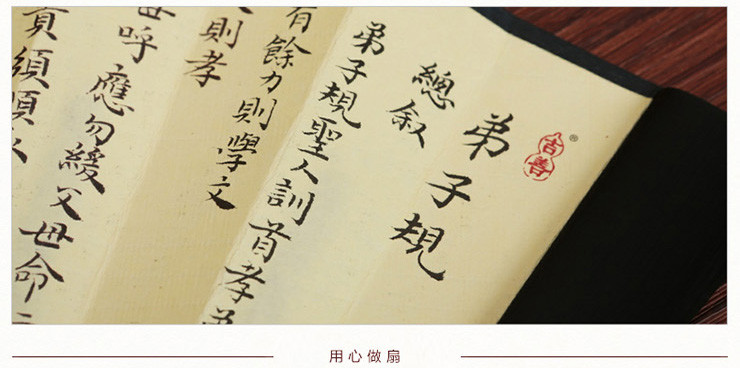 吉善®
弟子規
總叙
弟子規聖人訓首孝弟
有餘力則學文
則孝
母呼應勿緩父母命
責須順
用心做扇